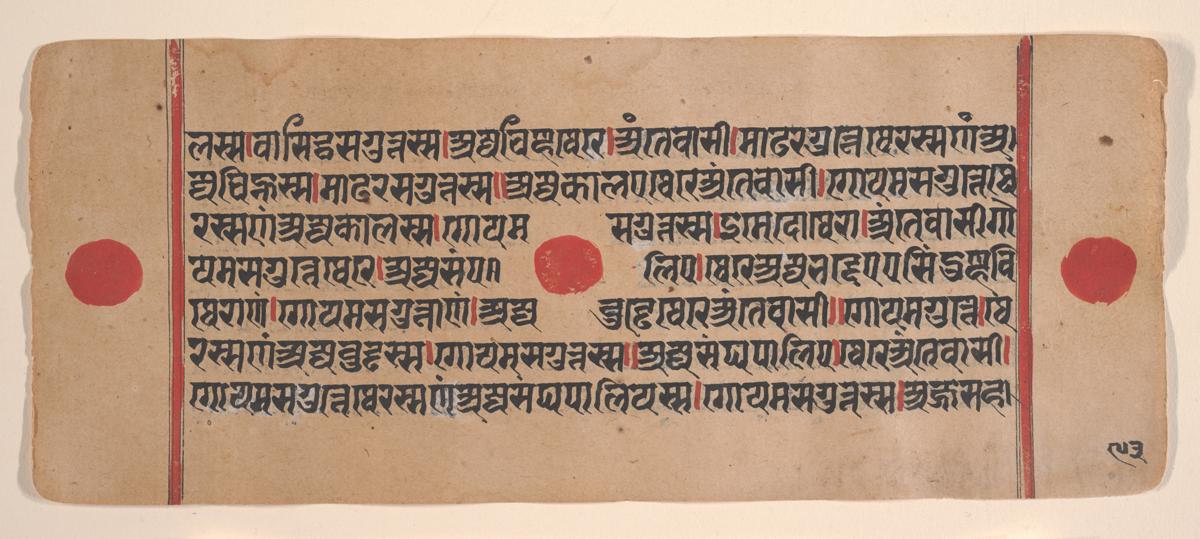 लस्स।वासिट्ठसगुत्तस्स।अज्जविण्हूथेरे।अंतेवासी।माढरगुत्तेथेरस्सणंअज्ज
विण्हुस्स।माढरसगुत्तस्स॥अज्जकालएथेरेअंतेवासी।गोयमसगुत्तेथे
रस्सणंअज्जकालस्स।गोयमसगुत्तस्स।इमेदोथेरा।अंतेवासीगो
यमसगुत्तेथेरे।अज्जसंपलिए।थेरेअज्जभद्देएएसिंदुण्हवि
थेराणं।गोयमसगुत्ताणं।अज्जवुड्ढेथेरेअंतेवासी॥गोयमगुत्ते।थे
रस्सणंअज्जवुड्ढस्स।गोयमसगुत्तस्स॥अज्जसंघपालिए।थेरेअंतेवासी।
गोयमसगुत्तेथेरस्सणंअज्जसंघपालियस्स।गोयमसगुत्तस्स।
१५३